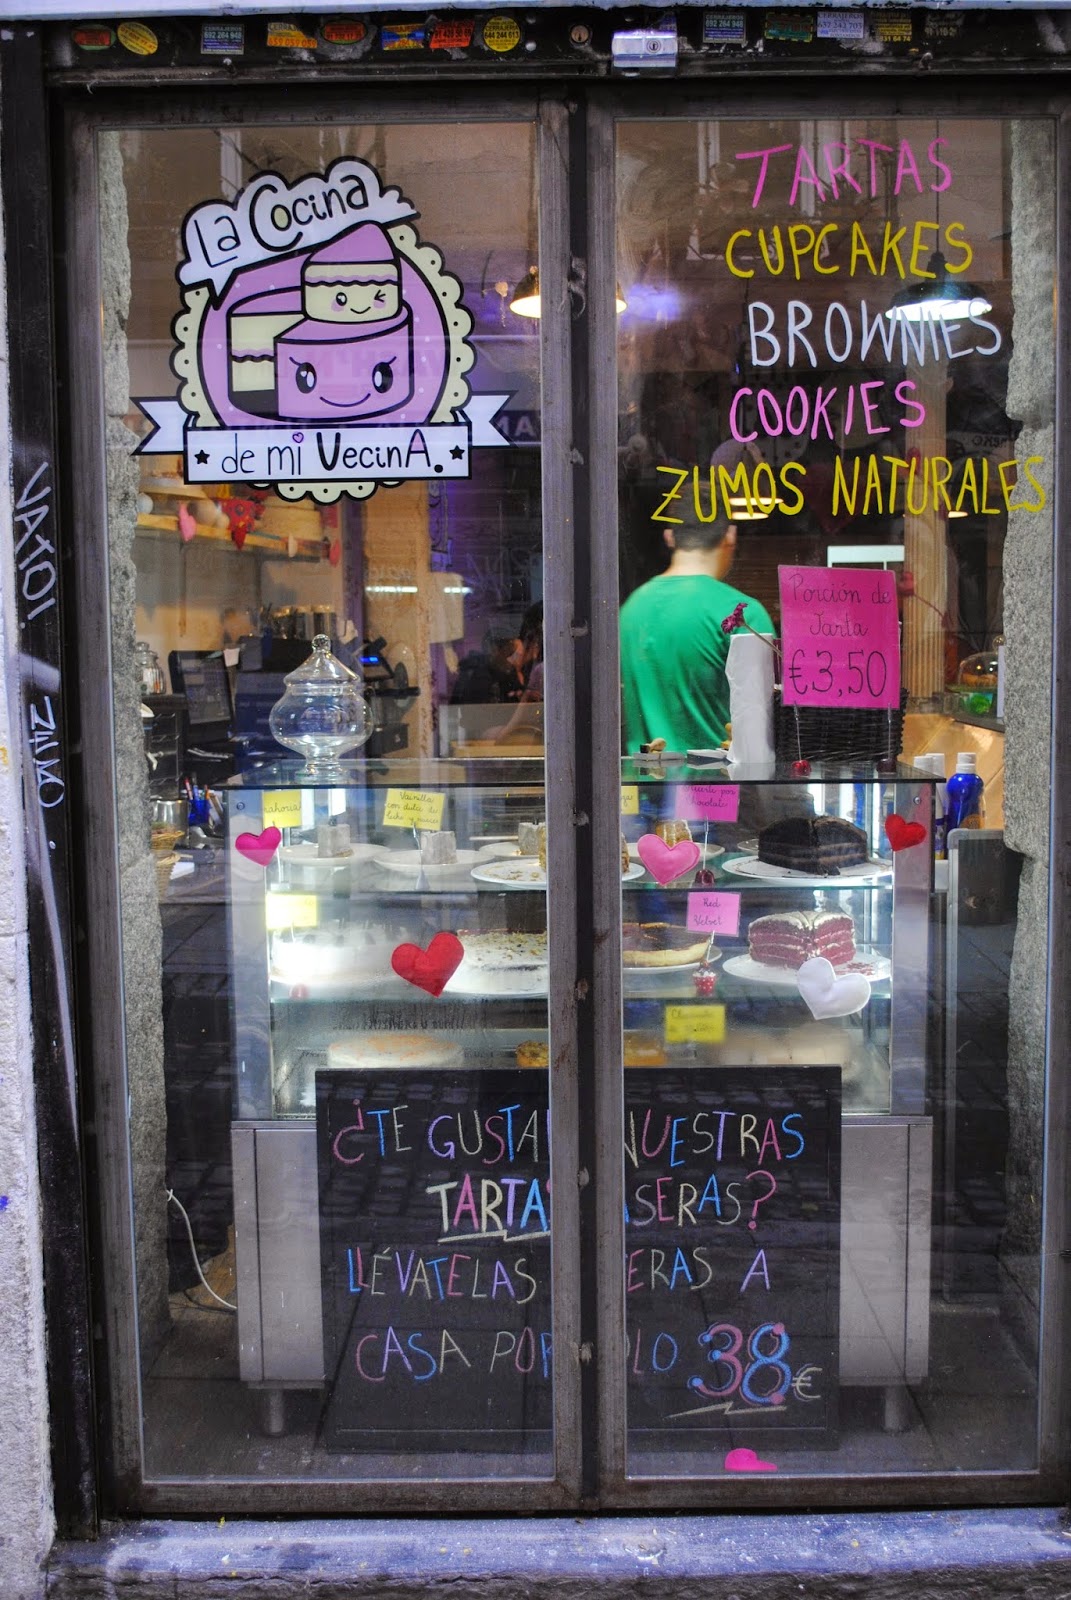 La Cocina
de mi VecinA.
TARTAS
CUPCAKES
BROWNIES
COOKIES
ZUMOS NATURALES
Porción de
Tarta
€3,50
Vainilla
con dulce de
leche y
Chocolate
Red
Velvet
¿TE GUSTA NUESTRAS
TARTAS SERAS?
LLÉVATELAS ERAS A
CASA POR LO 38€
VATO!